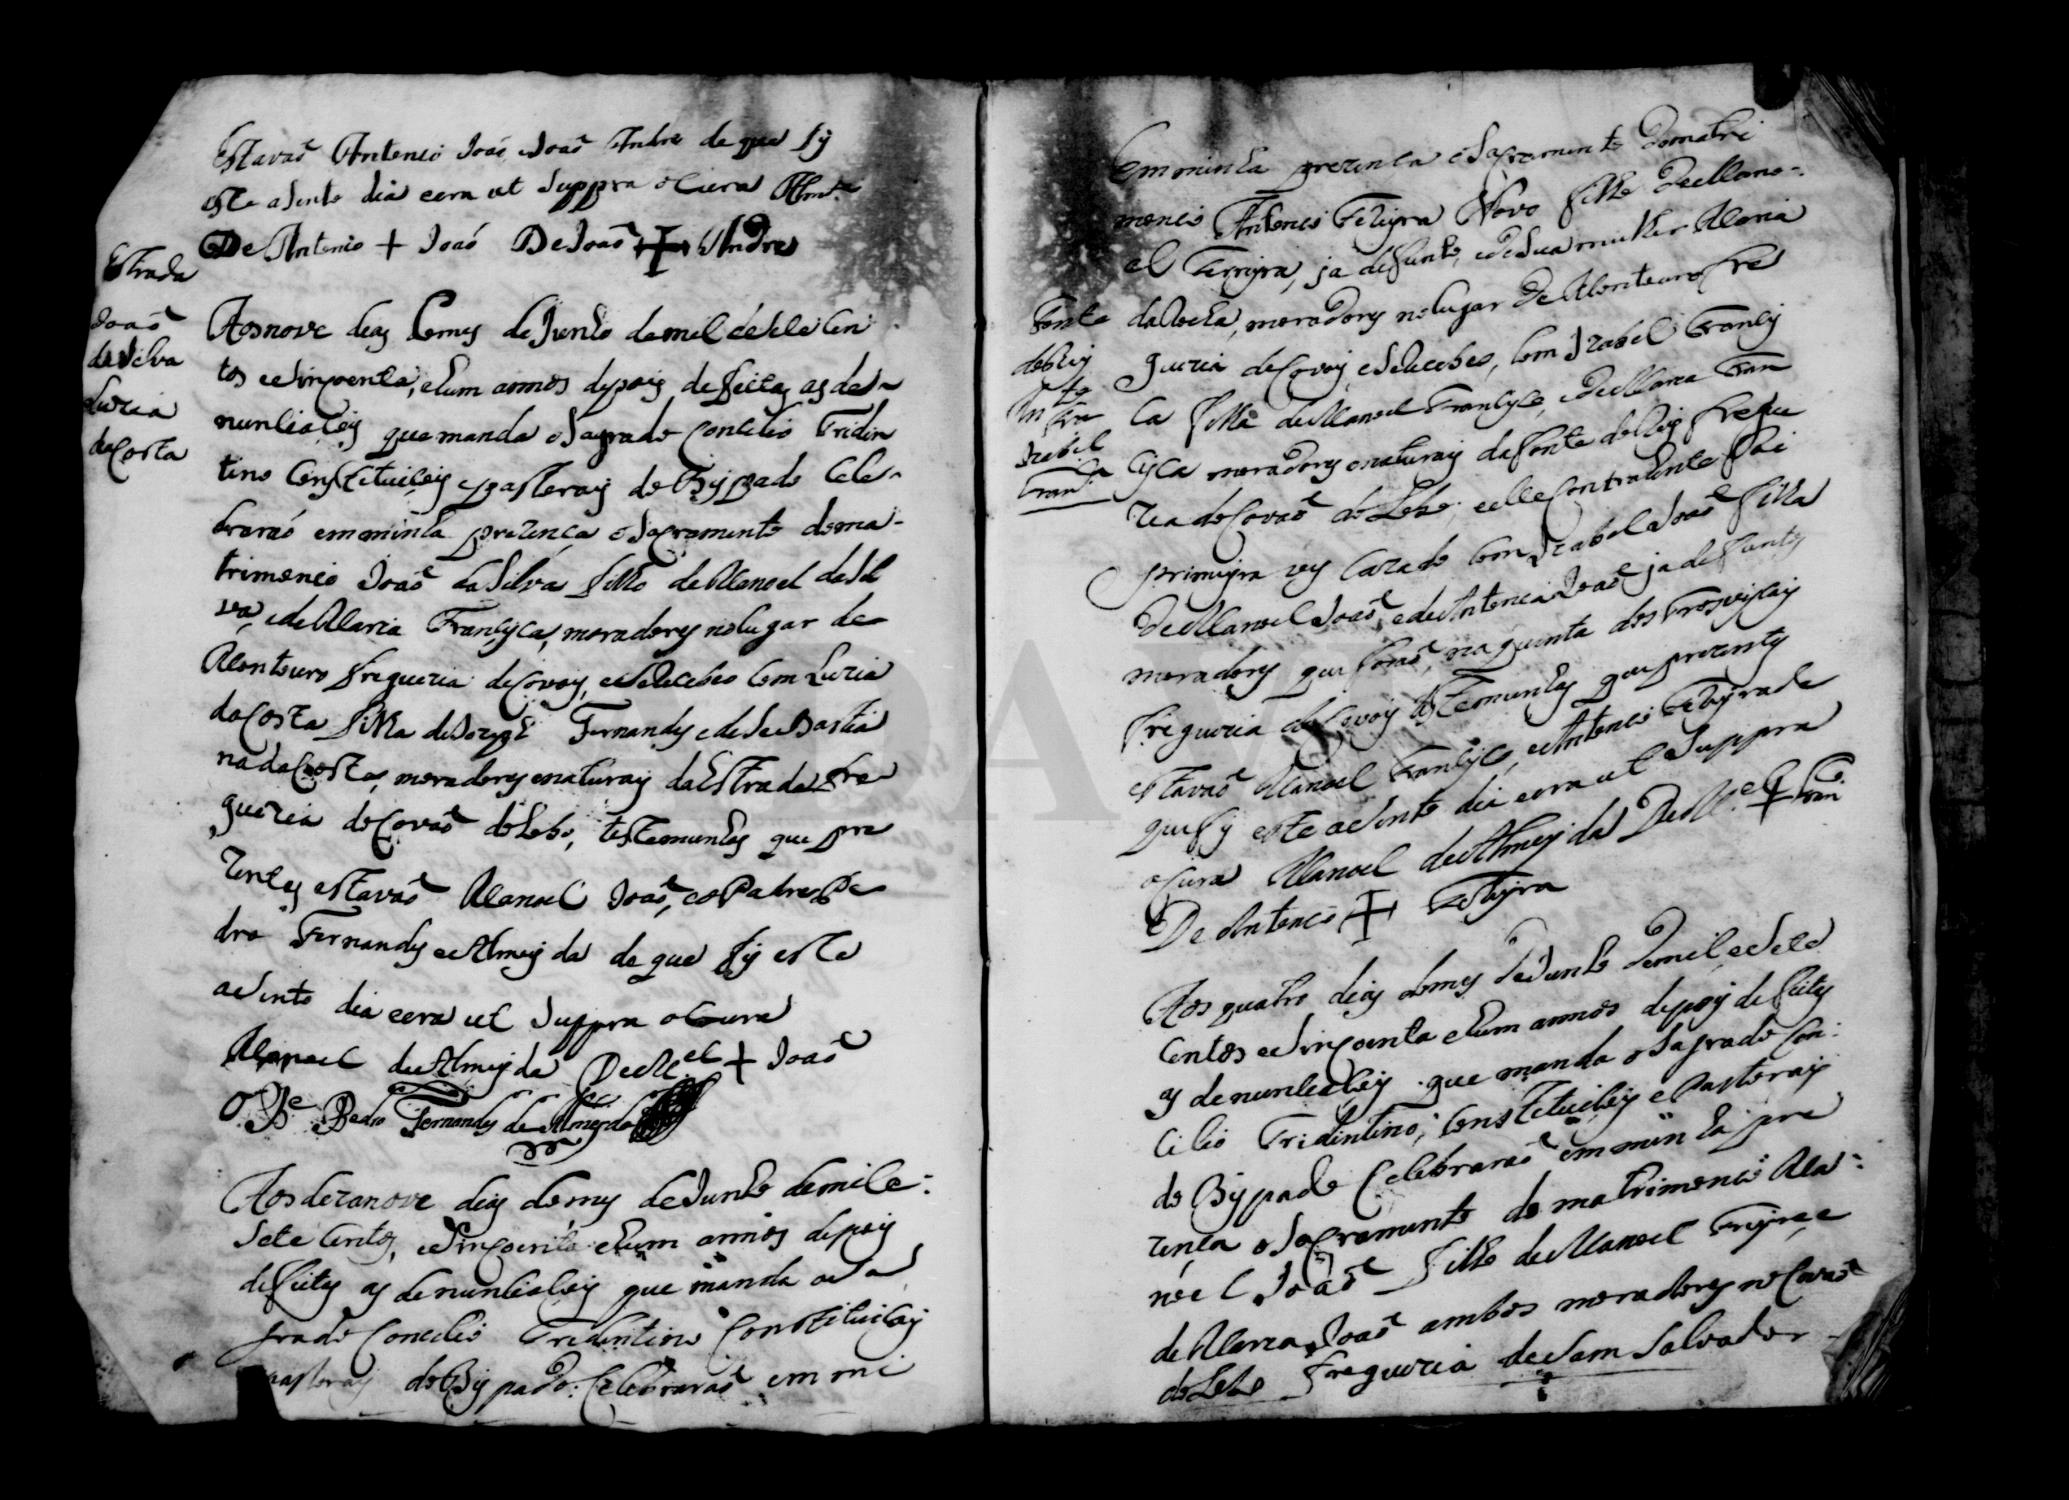 Estavaõ Antonio Joaõ, Joaõ Andre de que fiz
este asento dia eera ut Suppra oCura Alm.da
De Antonio + Joaõ DeJoaõ + Andre
Estrada
Joaõ
da Silva
Luzia
da Costa
Aos nove dias do mes de Junho de mil e sete cen
tos esincoenta, ehum annos depois de feitas as de
nunciacois que manda o Sagrado Concilio Tridin
tino Constetuicois epastorais do Bispado Cele-
braraõ em minha prezença o Sacramento doma-
trimonio Joaõ da Silva filho de Manoel da Sil
va, e de Maria Francisca, moradores no lugar de
Montouro freguezia deCovois, eserecebeo Com Luzia
da Costa filha de Jozeph Fernandes e de Sebastia
na da Costa, moradores enaturais da Estrada fre
guezia de Covaõ do Lobo, testemunhas que pre
zentes estavaõ Manoel Joaõ, eo Padre Pe
dro Fernandes de Almeyda de que fiz este
asento dia eera ut Suppra oCura
Manoel de Almeyda De M.el + Joaõ
O P.e Pedro Fernandes de Almeyda
Aos dezanove dias do mes de Junho de mil e
Sete centos, esincoenta ehum annos depois
de feitas as denunciacois que manda o Sa
grado Concilio Tridintino Constituicois
pastorais do Bispado: Celebraraõ em mi
Em minha prezenca o Sacramento do matri
monio Antonio Ferreyra Novo filho de Mano-
el Ferreyra, ja defunto, e de sua mulher Maria
da Rocha, moradores no lugar de Montouro fre
guezia de Covois, eSereCebeo, Com Izabel Francis
Ca filha de Manoel Francisco, e de Maria Fran
cisca moradores enaturais da fonte do Rey fregue
zia do Covaõ do Lobo, eelle Contrahente foi
primeyra ves Cazado Com Izabel Joaõ filha
de Manoel Joaõ, e de Antonia Joaõ ja defuntos
moradores que foraõ, na quinta dos
freguezia de Covois testemunhas que prezentes
estavaõ Manoel Francisco, e Antonio
que fiz este asento dia eera ut Suppra
oCura Manoel de Almeyda De M.el + Fran.co
De Antonio +
Fonte
do Rey
Izabel
Fran.ca
Aos quatro dias do mes de Junho de mil e Sete
Centos esincoenta ehum annos depois de feitas
as denunciacois que manda o Sagrado Con-
Cilio Tridintino, Constetuicois epastorais
do Bispado Celebraraõ em minha pre
zença o Sacramento do matrimonio Ma-
noel Joaõ filho de Manoel Freyre, e
de Maria Joaõ ambos moradores no Covaõ
do Lobo Freguezia de Sam Salvador